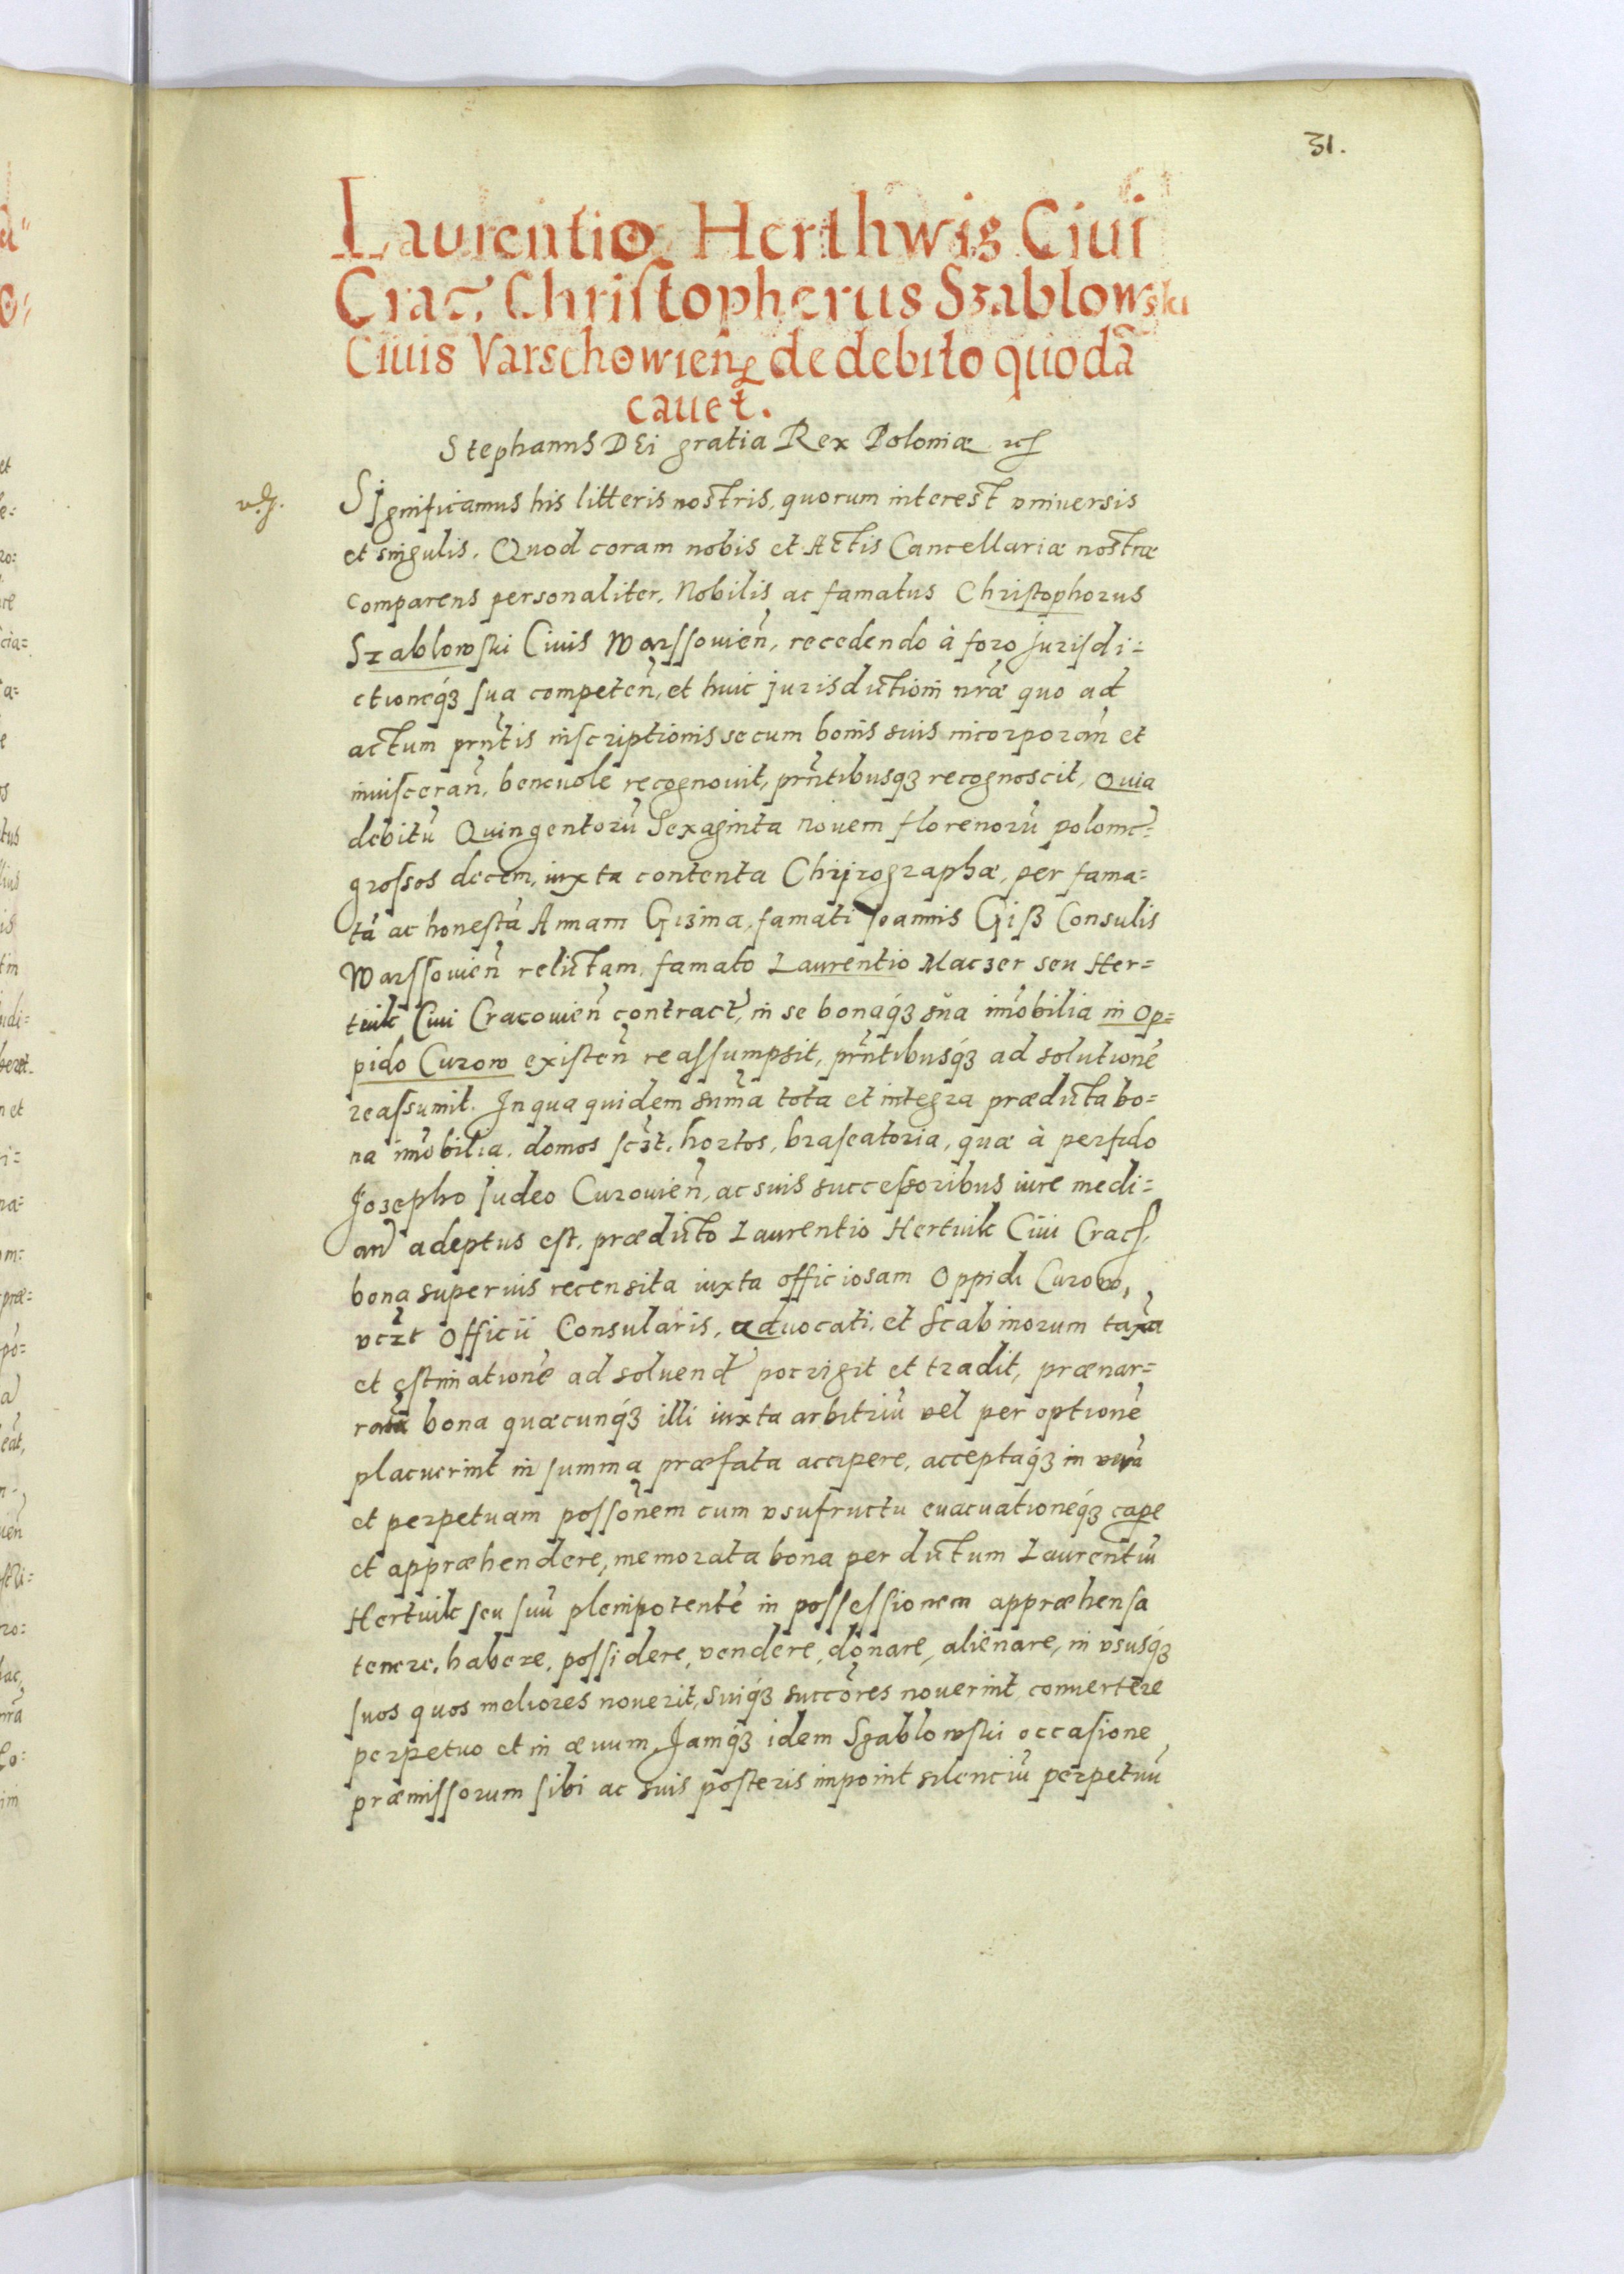 31.
Laurentio Herthwig Ciui
Crac. Christopherus Szablowski
Ciuis Varschowień de debito quodā
cauet.
Stephanus DEi gratia Rex Poloniæ etc
Significamus his litteris nostris, quorum interest vniuersis
et singulis. Quod coram nobis et Actis Cancellariæ nostræ
comparens personaliter. Nobilis ac famatus Christophorus
Szablowski Ciuis Warssouień, recedendo à foro jurisdi=
ctioneq́ꝫ sua competeń, et huic jurisdictioni nr̃æ quo ad
actum prñtis inscriptionis se cum bonis suis incorporań et
inuisceran̄, beneuole recognouit, prñtibusqꝫ recognoscit, Quia
debitū Quingentorū Sexaginta nouem florenorū polonic=
grossos decem, iuxta contenta Chijrographæ, per fama=
tā ac honestā Annam Gizina, famati Joannis Giß Consulis
Warssouień relictam, famato Laurentio Maczer seu Her=
tuik Ciui Cracouień contract, in se bonaq́ꝫ sua im̃obilia in Op=
pido Curow existeń reassumpsit, prñtibusq́ꝫ ad solutionē
reassumit. In qua quidem sum̃a tota et integra prædicta bo=
na im̃obilia, domos sczt, hortos, braseatoria, quæ à perfido
Jozepho Judeo Curouień, ac suis successoribus iure medi=
an adeptus est, prædicto Laurentio Hertuik Ciui Crac,
bona superius recensita iuxta officiosam Oppidi Curow,
vczt Officii Consularis, aduocati, et Scabinorum taxā
et estimationē ad soluend porrigit et tradit, prænar=
rata bona quæcunq́ꝫ illi iuxta arbitriū vel per optionē
placuerint in summa præfata accipere, acceptaq́ꝫ in
et perpetuam possõnem cum vsufructu euacuationeq́ꝫ capere
et appræhendere, memorata bona per dictum Laurentiū
Hertuik seu suū plenipotentē in possessionem appræhensa
tenere, habere, possidere, vendere, donare, alienare, in vsusq́ꝫ
suos quos meliores nouerit, suiq́ꝫ succõres nouerint conuertere
perpetuo et in æuum, Jamq́ꝫ idem Szablowski occasione
præmissorum sibi ac suis posteris imponit silenciū perpetuū